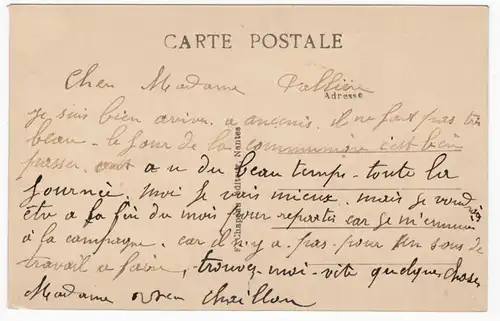 CARTE POSTALE
Cher Madame Pallière
Adresse
je suis bien arrivé a ancenis. il ne fait pas très
beau - le jour de la communion c'est bien
passer on a u du beau temps - toute la
journée. moi je vais mieux. mais je voudrais
êtr a la fin du mois pour repartir car je m'ennuis
à la campagne. car il n'y a pas pour un sous de
travail a faire, trouvez-moi-vite quelques choses
Madame Chaillou
F. Chapeau, Editeur, Nantes